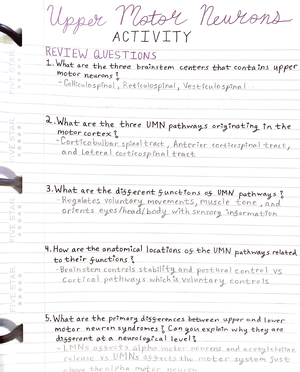 Upper Motor Neurons
ACTIVITY
REVIEW QUESTIONS
1. What are the three brainstem centers that contains upper
motor neurons?
- Colliculospinal, Reticulospinal, Vesticulospinal
2. What are the three UMN pathways originating in the
motor cortex?
- Corticobulbar spinal tract, Anterior corticospinal tract,
and Lateral corticospinal tract
3. What are the different functions of UMN pathways?
- Regulates voluntary movements, muscle tone, and
orients eyes/head/body with sensory information
4. How are the anatomical locations of the UMN pathways related
to their functions?
- Brainstem controls stability and postural control vs
Cortical pathways which is voluntary controls
5. What are the primary differences between upper and lower
motor neuron syndromes? Can you explain why they are
different at a neurological level?
- LMNs affects alpha motor neurons and acetylcholine
release vs UMNs affects the motor system just
above the alpha motor neuron
FIVE STAR
FIVE STAR
FIVE STAR
FIVE STAR